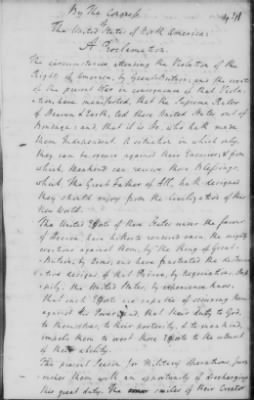 By The Congress
The United States of North America:
A Proclamation.
The circumstances attending the Violation of the
Rights of America, by Great Britain; and the events
of the present War in consequence of that Viola-
tion, have manifested, that the Supreme Ruler
of Heaven & Earth, led these United States out of
Bondage: and that it is He, who hath made
them Independent. A situation in which only,
they can be secure against their Enemies, & from
which, Mankind can receive those Blessings,
which The Great Father of All, hath designed
they should enjoy from the Civilization of the
New World.
The United Efforts of these States under the favor
of Heaven, have hitherto rendered vain the mighty
exertions against them, by the King of Great
Britain, by Arms; and have frustrated the
designs of that Prince, by Negociation.
the United States, by experience know,
that such Efforts are capable of securing them
against his Power; and, that their Duty to God,
to themselves, to their posterity, & to mankind,
impels them to exert those Efforts to the utmost
of their ability.
The present Season for Military operations, fur-
nishes them with an opportunity of discharging
this great duty. The smiles of their Creator